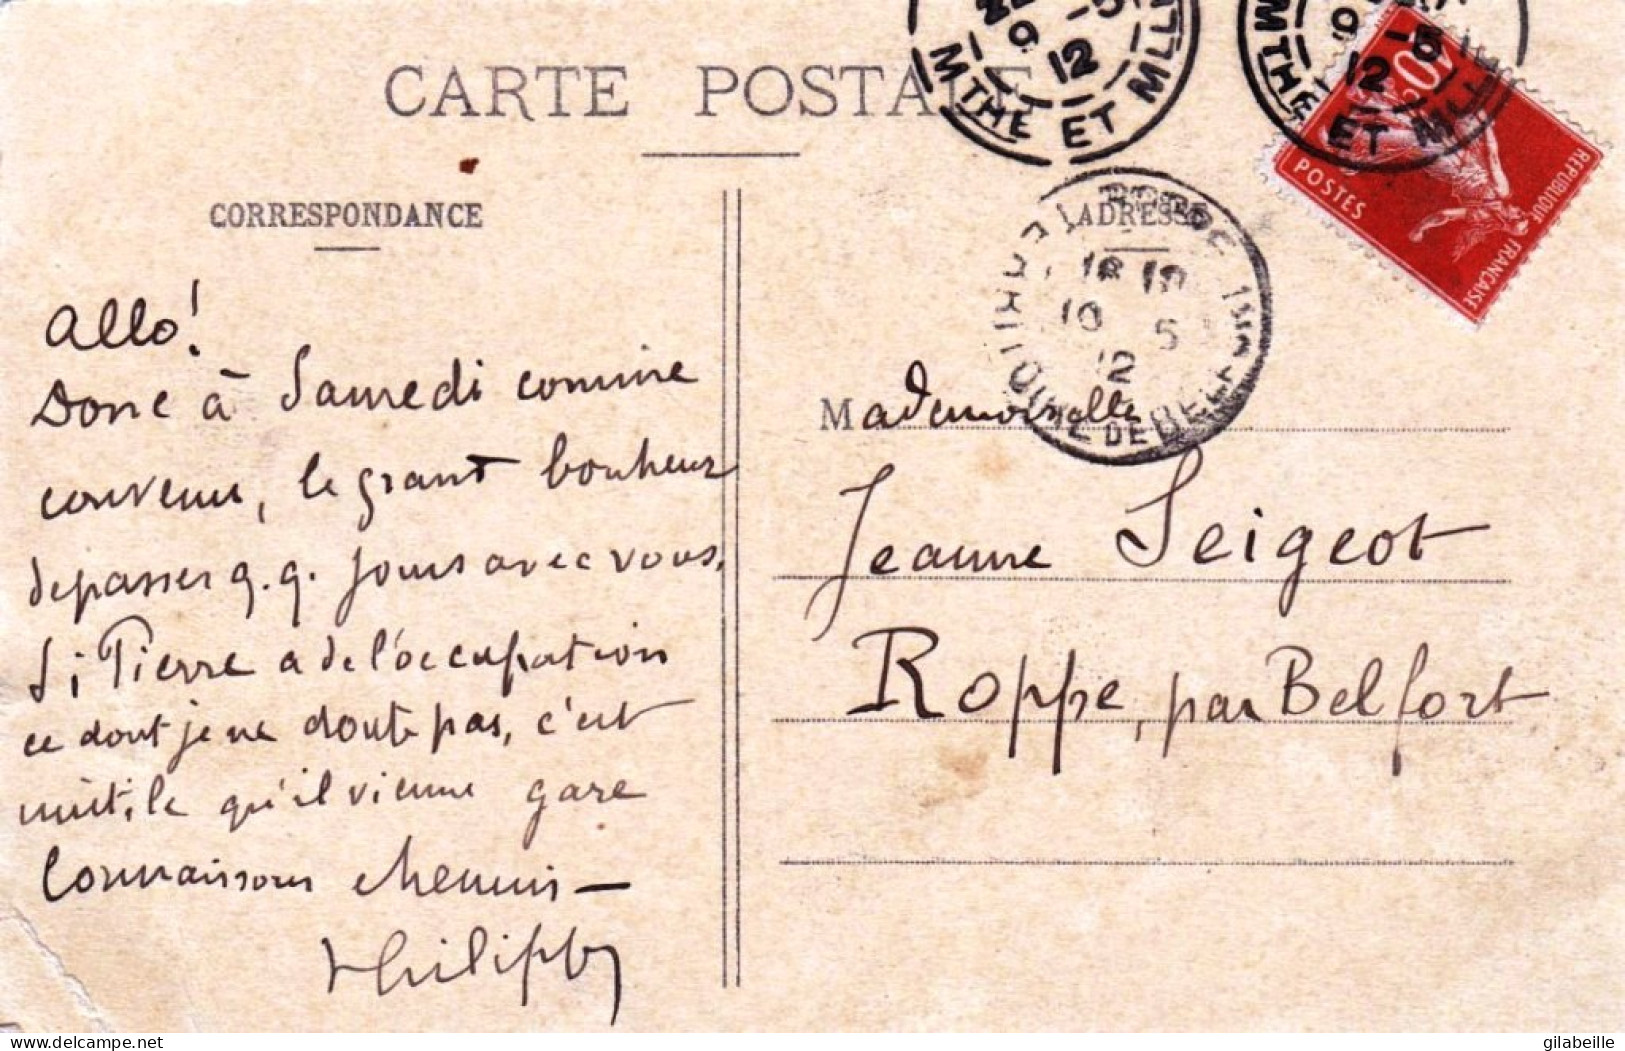 CARTE POSTALE
CORRESPONDANCE
ADRESSE
Allo!
Donc à Samedi comme
convenu, le grand bonheur
de passer q.q. jours avec vous.
Si Pierre a de l'occupation
ce dont je ne doute pas, c'est
inutile qu'il vienne gare
Connaissons chemin —
Philippe
Mademoiselle
Jeanne Seigeot
Roppe, par Belfort
MTHE ET MLLE
12
MTHE ET MLLE
12
10
POSTES
REPUBLIQUE FRANÇAISE
10 5
12
DE BELFORT
delcampe.net
gilabeille